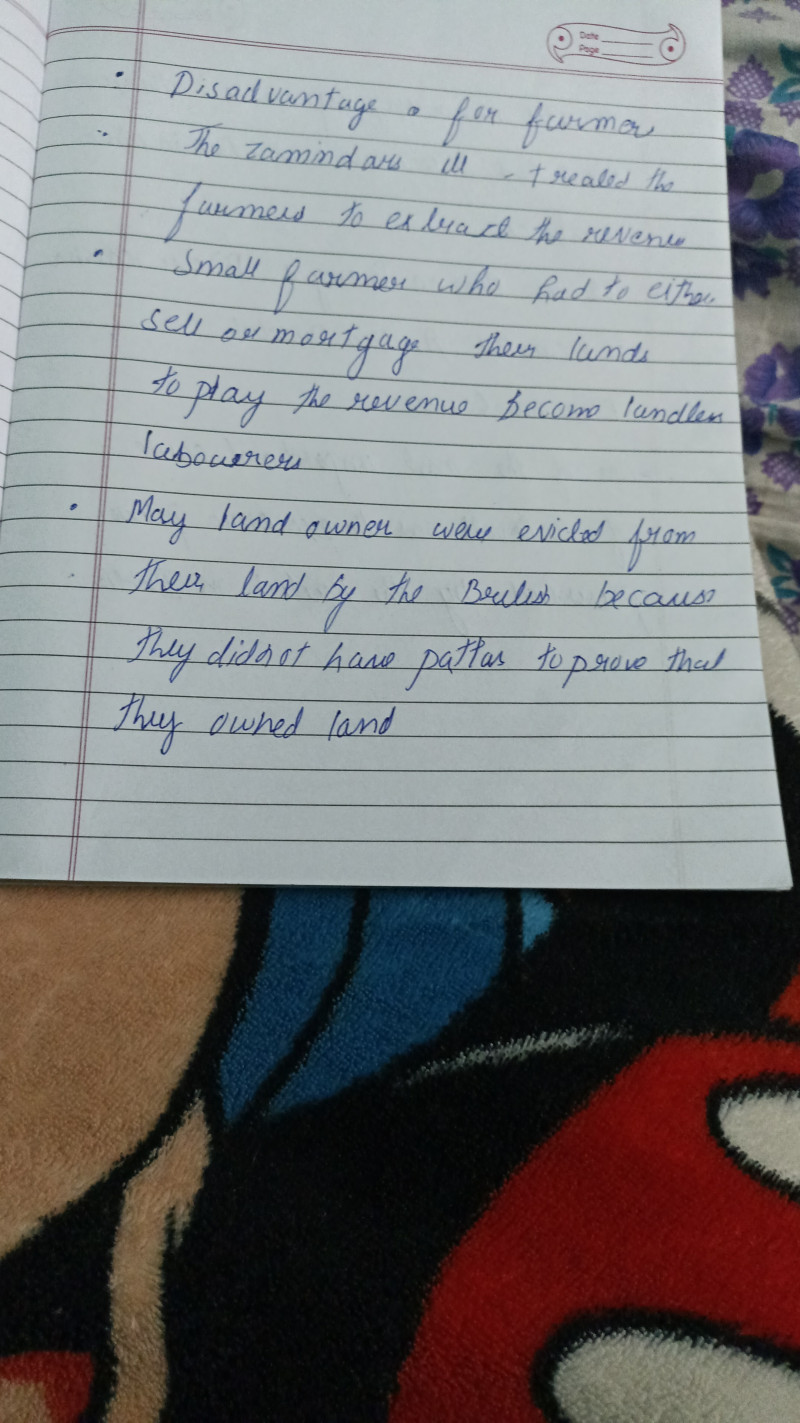 Date
Page
• Disadvantage o for farmer
The zamindars ill - treated the
farmers to extract the revenue
• Small farmer who had to either
sell or mortgage their lands
to play the revenue become landless
labourers
• May land owner were evicted from
their land by the British because
they did not have pattas to prove that
they owned land